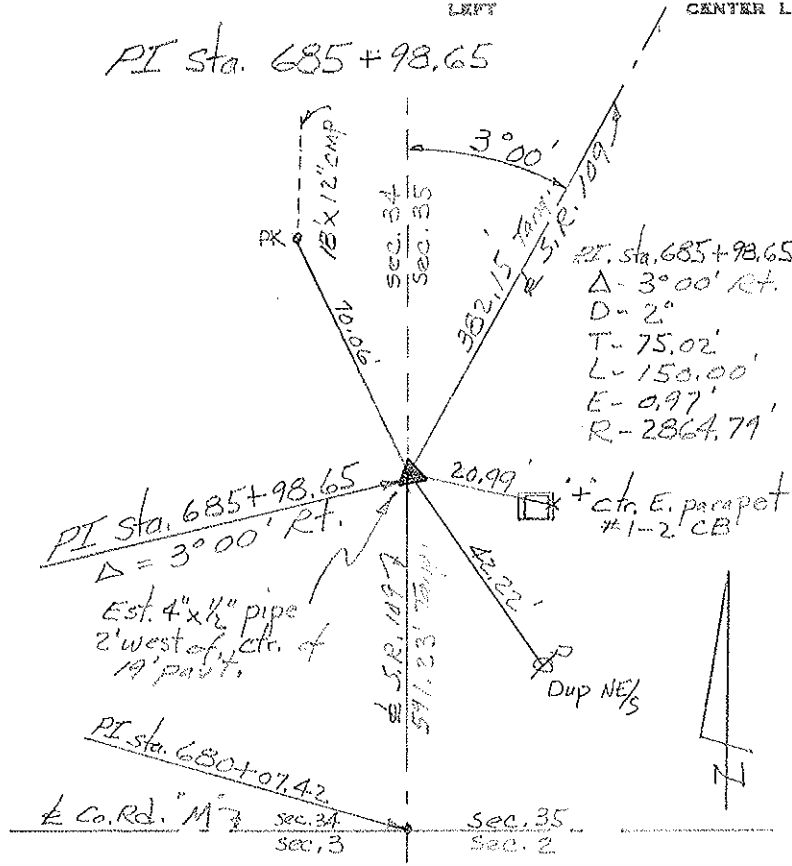 LEFT
CENTER L
PI sta. 685+98.65
3°00'
18'x12" CMP
PK
sec. 34
sec. 35
382.15' Tang.
℄ S.R. 109
70.06'
PI. sta. 685+98.65
Δ - 3°00' Rt.
D - 2°
T - 75.02'
L - 150.00'
E - 0.97'
R - 2864.79'
20.99'
"+" ctr. E. parapet
#1-2 CB
PI sta. 685+98.65
Δ = 3°00' Rt.
Est. 4"x1/2" pipe
2' west of ctr. of
19' pav't.
42.22'
Dup NE/S
℄ S.R. 109
591.23' Tang.
N
PI sta. 680+07.42
℄ Co. Rd. "M"
sec. 34
sec. 35
sec. 3
sec. 2